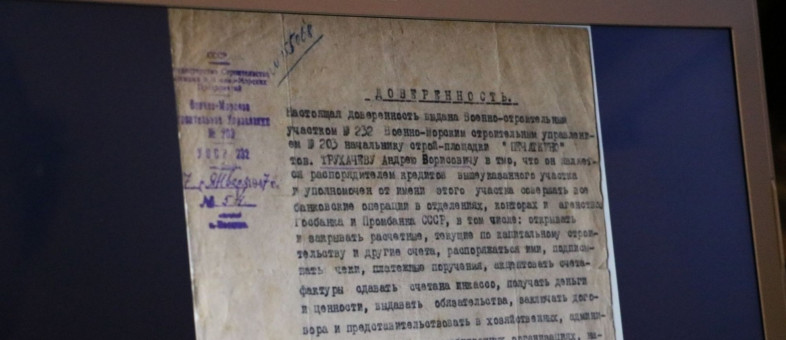 СССР
Строительства
Военно-Морское
Строительное Управление
№ 203
УВСР 232
№ 54
ДОВЕРЕННОСТЬ.
Настоящая доверенность выдана Военно-строительным
участком № 232 Военно-Морским строительным управлени-
ем № 203 начальнику строй-площадки "ПЕЧАТКИНО"
тов. ТРУХАЧЕВУ Андрею Борисовичу в том, что он является
распорядителем кредитов вышеуказанного участка
и уполномочен от имени этого участка совершать все
банковские операции в отделениях, конторах и агенства
Госбанка и Промбанка СССР, в том числе: открывать
и закрывать расчетные, текущие по капитальному строи-
тельству и другие счета, распоряжаться ими, подписы-
вать чеки, платежные поручения, акцептовать счета-
фактуры сдавать счетана инкассо, получать деньги
и ценности, выдавать обязательства, заключать дого-
вора и представительствовать в хозяйственных, админи-
организациях,